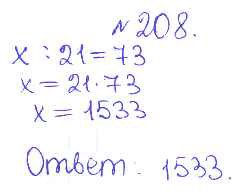 № 208.
x : 21 = 73
x = 21 · 73
x = 1533
Ответ: 1533.